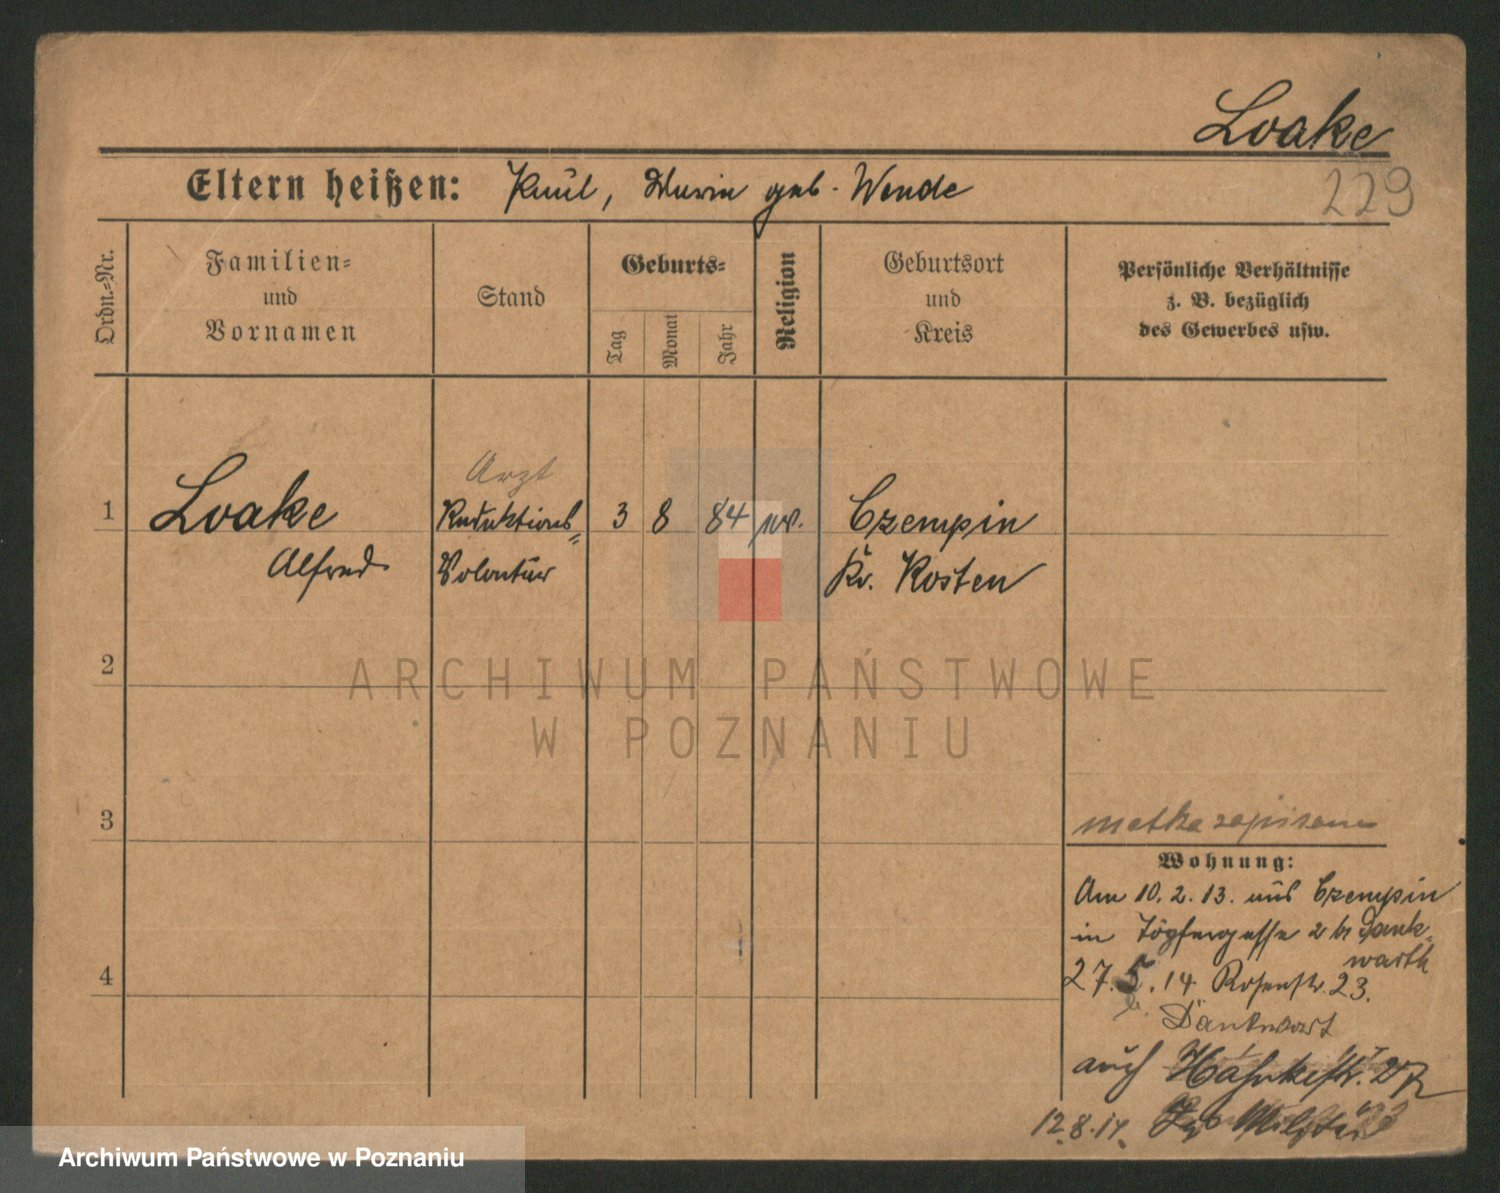 Loake
229
Eltern heißen: Paul, Maria geb. Wende
Ordn.=Nr.
Familien=
und
Vornamen
Stand
Geburts=
Tag
Monat
Jahr
Religion
Geburtsort
und
Kreis
Persönliche Verhältnisse
z. B. bezüglich
des Gewerbes usw.
Arzt
1 Loake Redaktions= 3 8 84 ev. Czempin
Alfred Volontär Kr. Kosten
2
3
matka zapisana
Wohnung:
Am 10.2.13. aus Czempin
in Töpfergasse 2 b/ Dank
warth
27.5.14 Rosenstr. 23.
b. Dankwart
4
auch
12.8.14. Militär
ARCHIWUM PAŃSTWOWE
W POZNANIU
Archiwum Państwowe w Poznaniu